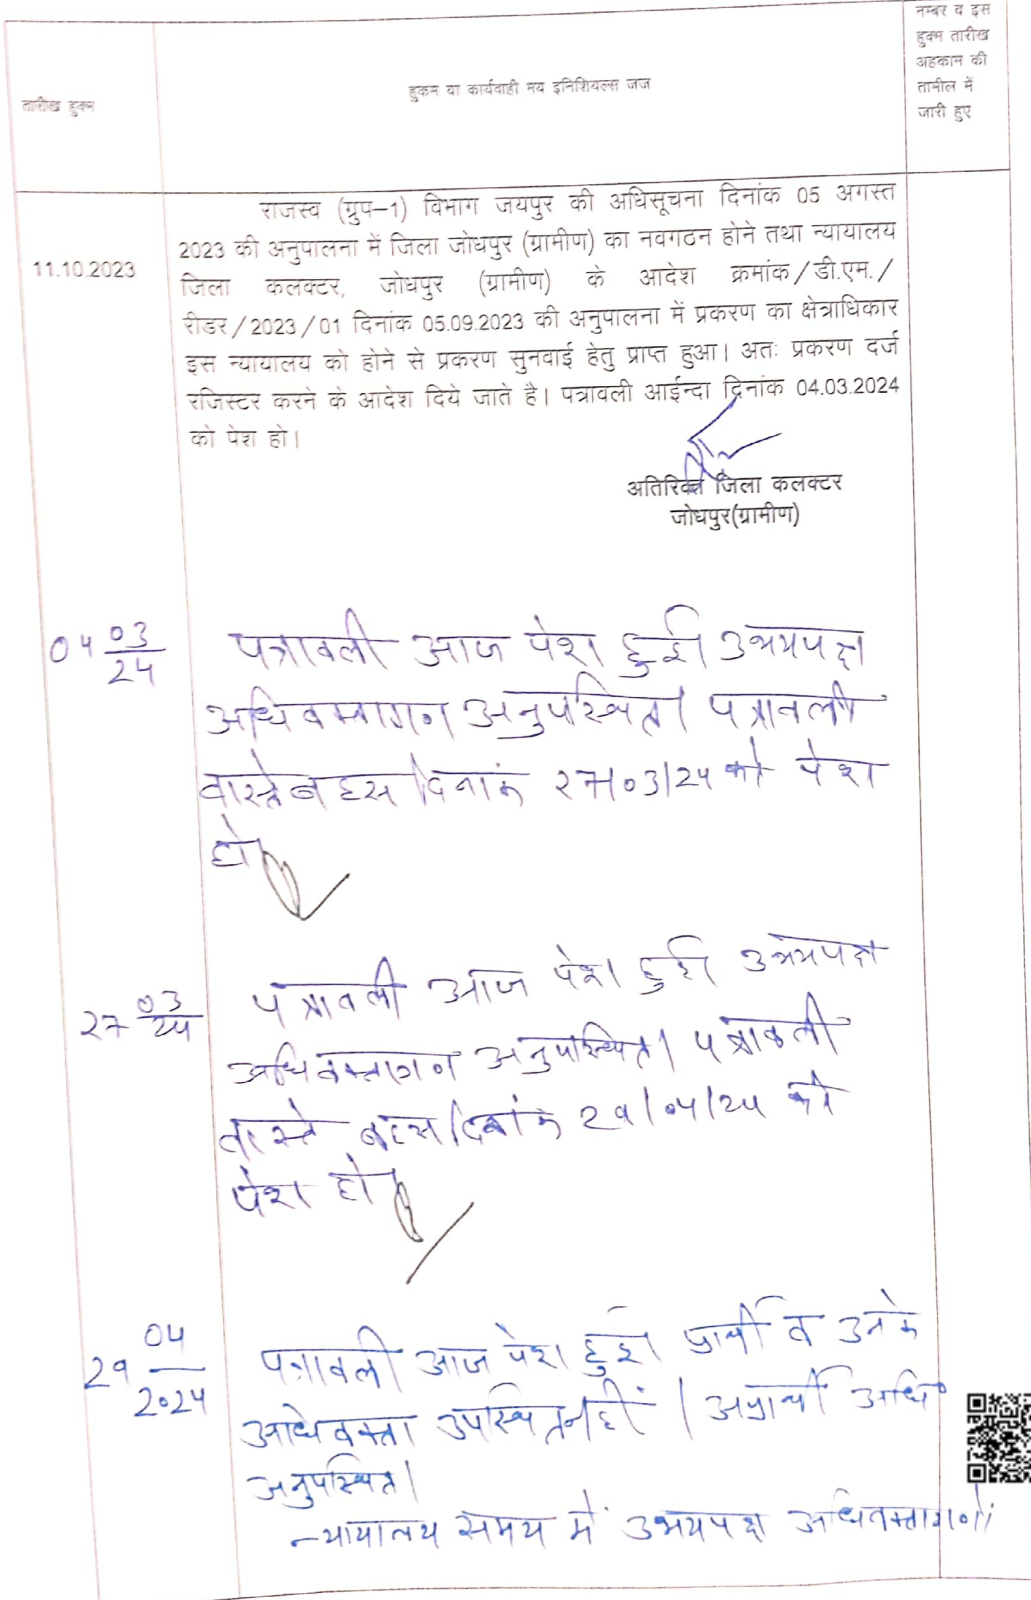 तारीख हुक्म
हुकम या कार्यवाही मय इनिशियल्स जज
नम्बर व इस
हुक्म तारीख
अहकाम की
तामील में
जारी हुए
11.10.2023
राजस्व (ग्रुप–1) विभाग जयपुर की अधिसूचना दिनांक 05 अगस्त
2023 की अनुपालना में जिला जोधपुर (ग्रामीण) का नवगठन होने तथा न्यायालय
जिला कलक्टर, जोधपुर (ग्रामीण) के आदेश क्रमांक/डी.एम./
रीडर/2023/01 दिनांक 05.09.2023 की अनुपालना में प्रकरण का क्षेत्राधिकार
इस न्यायालय को होने से प्रकरण सुनवाई हेतु प्राप्त हुआ। अतः प्रकरण दर्ज
रजिस्टर करने के आदेश दिये जाते है। पत्रावली आईन्दा दिनांक 04.03.2024
को पेश हो।
अतिरिक्त जिला कलक्टर
जोधपुर(ग्रामीण)
04 03/24
पत्रावली आज पेश हुई। उभयपक्ष
अधिवक्तागण अनुपस्थित। पत्रावली
वास्ते बहस दिनांक 27/03/24 को पेश
हो।
27 03/24
पत्रावली आज पेश हुई। उभयपक्ष
अधिवक्तागण अनुपस्थित। पत्रावली
वास्ते बहस दिनांक 29/04/24 को
पेश हो।
29 04/2024
पत्रावली आज पेश हुई। प्रार्थी व उनके
अधिवक्ता उपस्थित नहीं। अप्रार्थी अधि०
अनुपस्थित।
न्यायालय समय में उभयपक्ष अधिवक्तागण